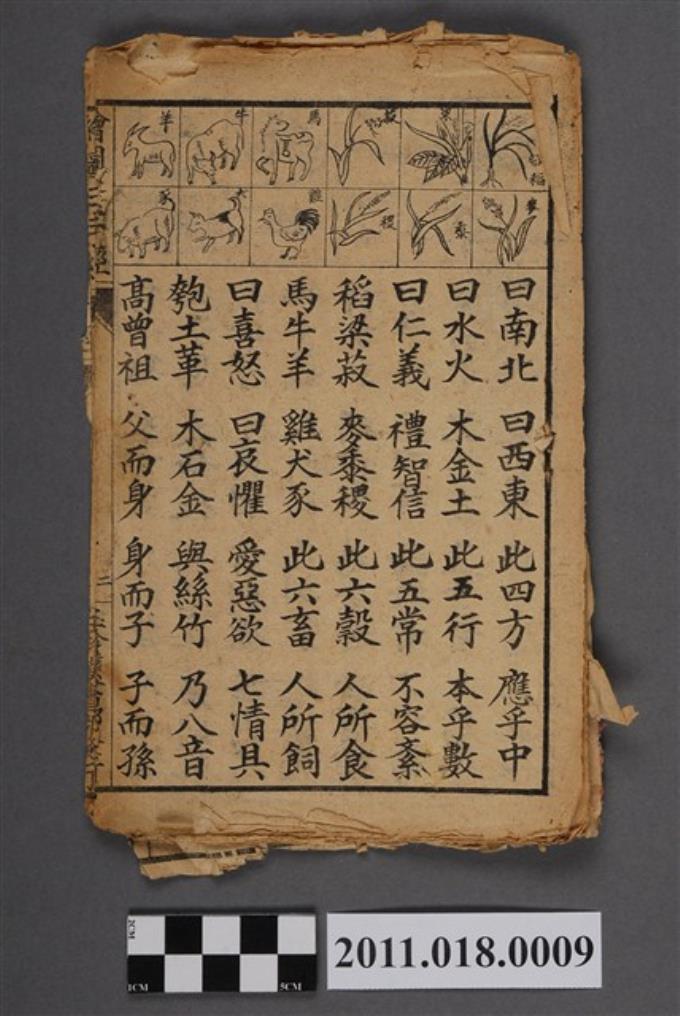 稻
菽
馬
牛
羊
麥
黍
稷
雞
犬
豕
曰南北 曰西東 此四方 應乎中
曰水火 木金土 此五行 本乎數
曰仁義 禮智信 此五常 不容紊
稻粱菽 麥黍稷 此六穀 人所食
馬牛羊 雞犬豕 此六畜 人所飼
曰喜怒 曰哀懼 愛惡欲 七情具
匏土革 木石金 與絲竹 乃八音
高曾祖 父而身 身而子 子而孫
繪圖三字經
二
2CM
1CM
5CM
2011.018.0009